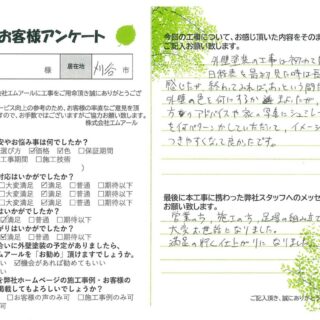 お客様アンケート
様 居在地 刈谷 市
会社エムアールに工事をご用命頂き誠にありがとうござ
ービス向上の参考のため、お客様の率直なご意見を頂
ますので、お手数ではございますがご協力お願い致します。
株式会社エムアール
安やお悩み事は何でしたか？
選び方 価格 色 保証期間
工事期間 施工技術
対応はいかがでしたか？
大変満足 満足 普通 期待以下
いかがでしたか？
大変満足 満足 普通 期待以下
がりはいかがでしたか？
大変満足 満足 普通 期待以下
合いに外壁塗装の予定がありましたら、
エムアールを「お勧め」頂けますでしょうか。
い 機会があれば勧めてもいい
い
を弊社ホームページの施工事例・お客様の
掲載してもよろしいでしょうか？
お客様の声のみ可 施工事例のみ可
今回の工事について、お感じ頂いた内容をそのま
ご記入お願い致します。
外壁塗装の工事は初めて
感じたが、終わってみれば、あっという間
外壁の色を何にするか
方のアドバイスや
を何パターンかしていただいて、イメージ
つきやすくなって良かったです。
最後に本工事に携わった弊社スタッフへのメッセ
お願い致します。
営業の方、施工の方、足場の組み立て
大変お世話になりました。
満足の行く仕上がりになりました。
ご記入頂き、誠にありがとう